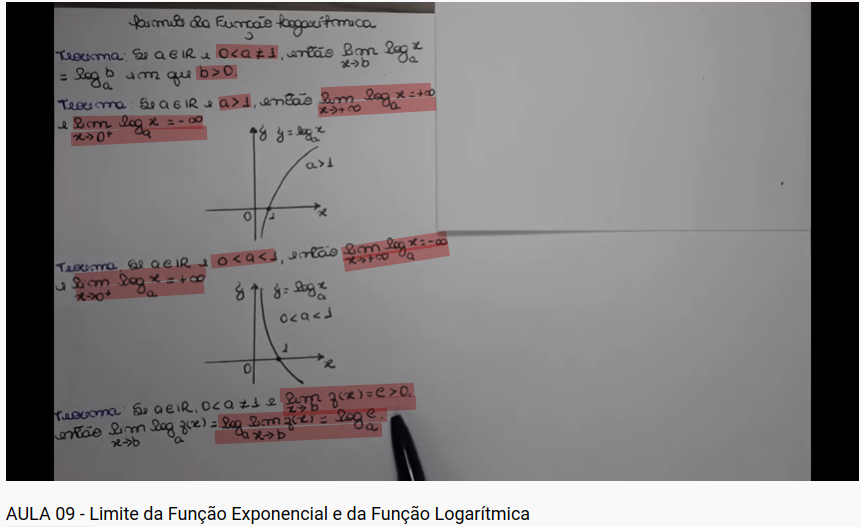 Limite da Função Logarítmica
Teorema: Se a ∈ IR e 0 < a ≠ 1, então lim log_a x
x→b
= log_a b em que b > 0.
Teorema: Se a ∈ IR e a > 1, então lim log_a x = +∞
x→+∞
e lim log_a x = -∞
x→0⁺
y y = log_a x
a > 1
0 1 x
Teorema: Se a ∈ IR e 0 < a < 1, então lim log_a x = -∞
x→+∞
e lim log_a x = +∞
x→0⁺
y y = log_a x
0 < a < 1
1
0 x
Teorema: Se a ∈ IR, 0 < a ≠ 1 e lim f(x) = c > 0,
x→b
então lim log_a f(x) = log_a lim f(x) = log_a c.
x→b x→b
AULA 09 - Limite da Função Exponencial e da Função Logarítmica